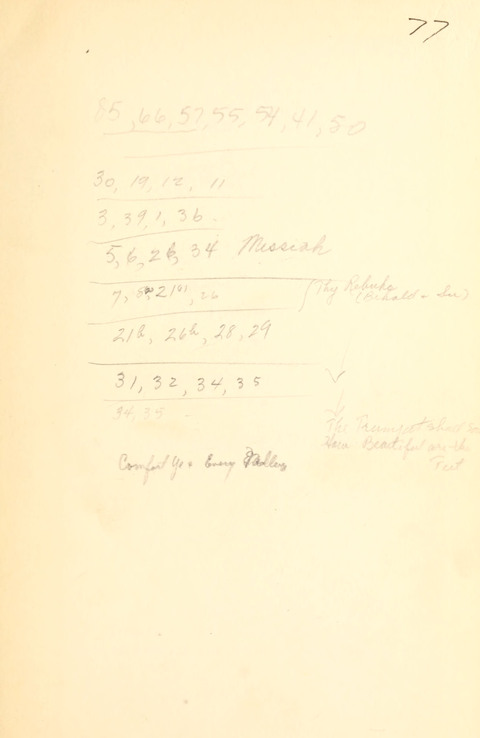 77
85, 66, 57, 55, 54, 41, 50
30, 19, 12, 11
3, 39, 1, 36.
5, 6, 26, 34 Messiah
7, 26
Thy Rebuke
(Behold + See)
21b, 26b, 28, 29
31, 32, 34, 35
34, 35 -
The Trumpet shall
How Beautiful are the
Feet
Comfort Ye + Every Valley